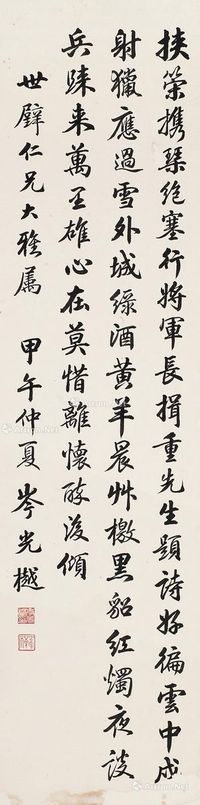 挟策携琴絶塞行將軍長揖重先生題詩好徧雲中戍
射獵應過雪外城緑酒黄羊晨艸檄黒貂紅燭夜談
兵歸来萬里雄心在莫惜離懷酔後傾
世壁仁兄大雅属 甲午仲夏 岑光樾